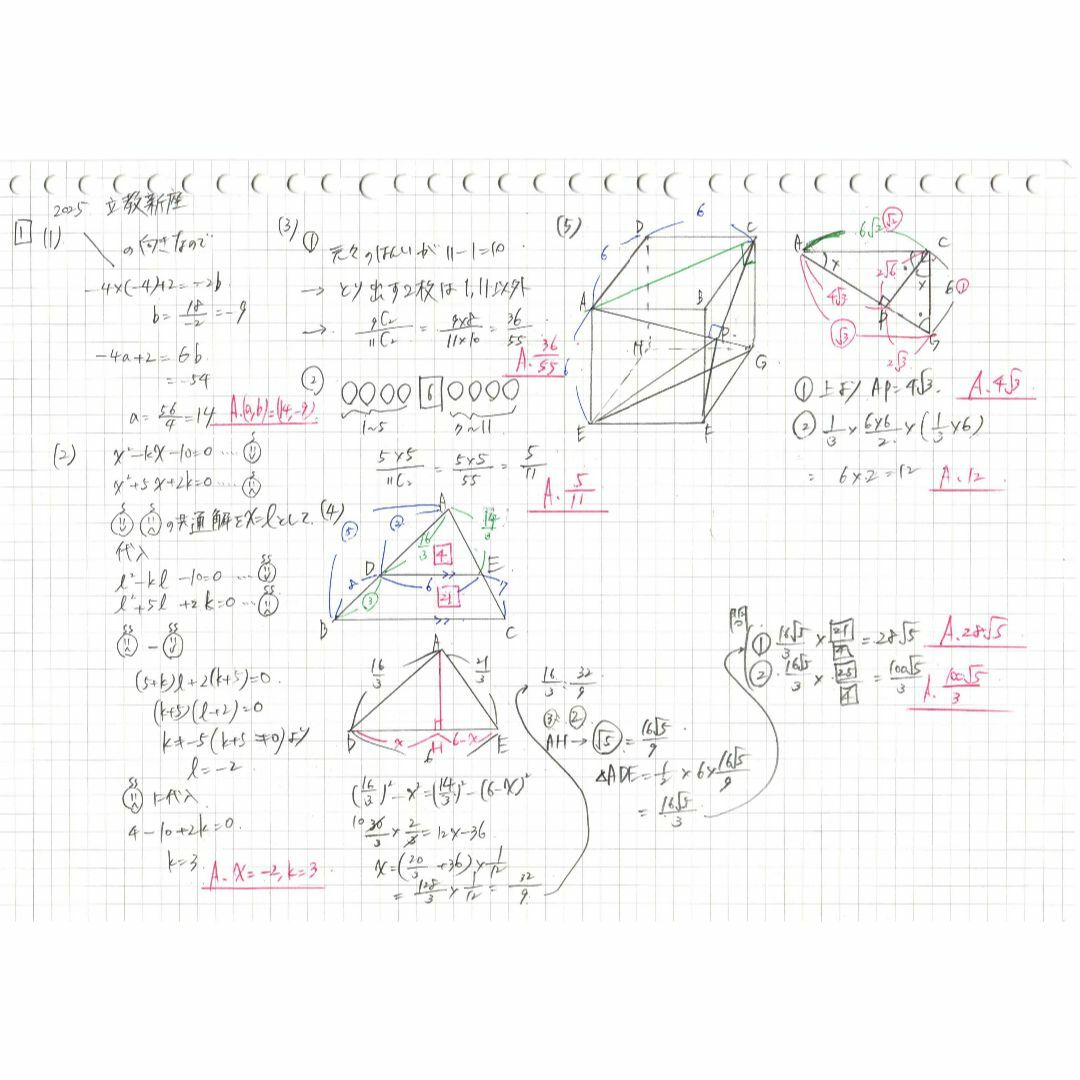 2025 立教新座
1
(1)
の向きなので
-4×(-4)+2=-2b
b=18/-2=-9
-4a+2=6b
=-54
a=56/4=14
A.(a,b)=(14,-9)
(2)
x²-kx-10=0 …
x²+5x+2k=0 …
の共通解をx=lとして
代入
l²-kl-10=0 …
l²+5l+2k=0 …
-
(5+k)l+2(k+5)=0
(k+5)(l+2)=0
k≠-5(k+5≠0)より
l=-2
に代入
4-10+2k=0
k=3
A. x=-2, k=3
(3)
①
元々のはんいが 11-1=10
→ とり出す2枚は1,11以外
→ 9C2/11C2 = 9×8/11×10 = 36/55
A. 36/55
②
○○○○ 6 ○○○○
1~5
7~11
5×5/11C2 = 5×5/55 = 5/11
A. 5/11
(4)
A
⑤
②
16/3
14/3
4
D
E
8
6
7
③
21
B
C
A
16/3
21/3
D
x
H
6-x
E
6
(16/3)²-x²=(14/3)²-(6-x)²
10 30/3×2/3=12x-36
x=(20/3+36)×1/12
=128/3×1/12=32/9
16/3:32/9
③:②
AH→√5=16√5/9
△ADE=1/2×6×16√5/9
=16√5/3
問
① 16√5/3×21/4=28√5
A. 28√5
② 16√5/3×25/4=100√5/3
A. 100√5/3
(5)
6
D
C
6
A
B
H
P
G
6
E
F
A
6√2
√2
C
x
2√6
x
6
①
4√3
P
√3
G
2√3
① 上よりAP=4√3.
A. 4√3
② 1/3×6×6/2×(1/3×6)
= 6×2=12
A. 12